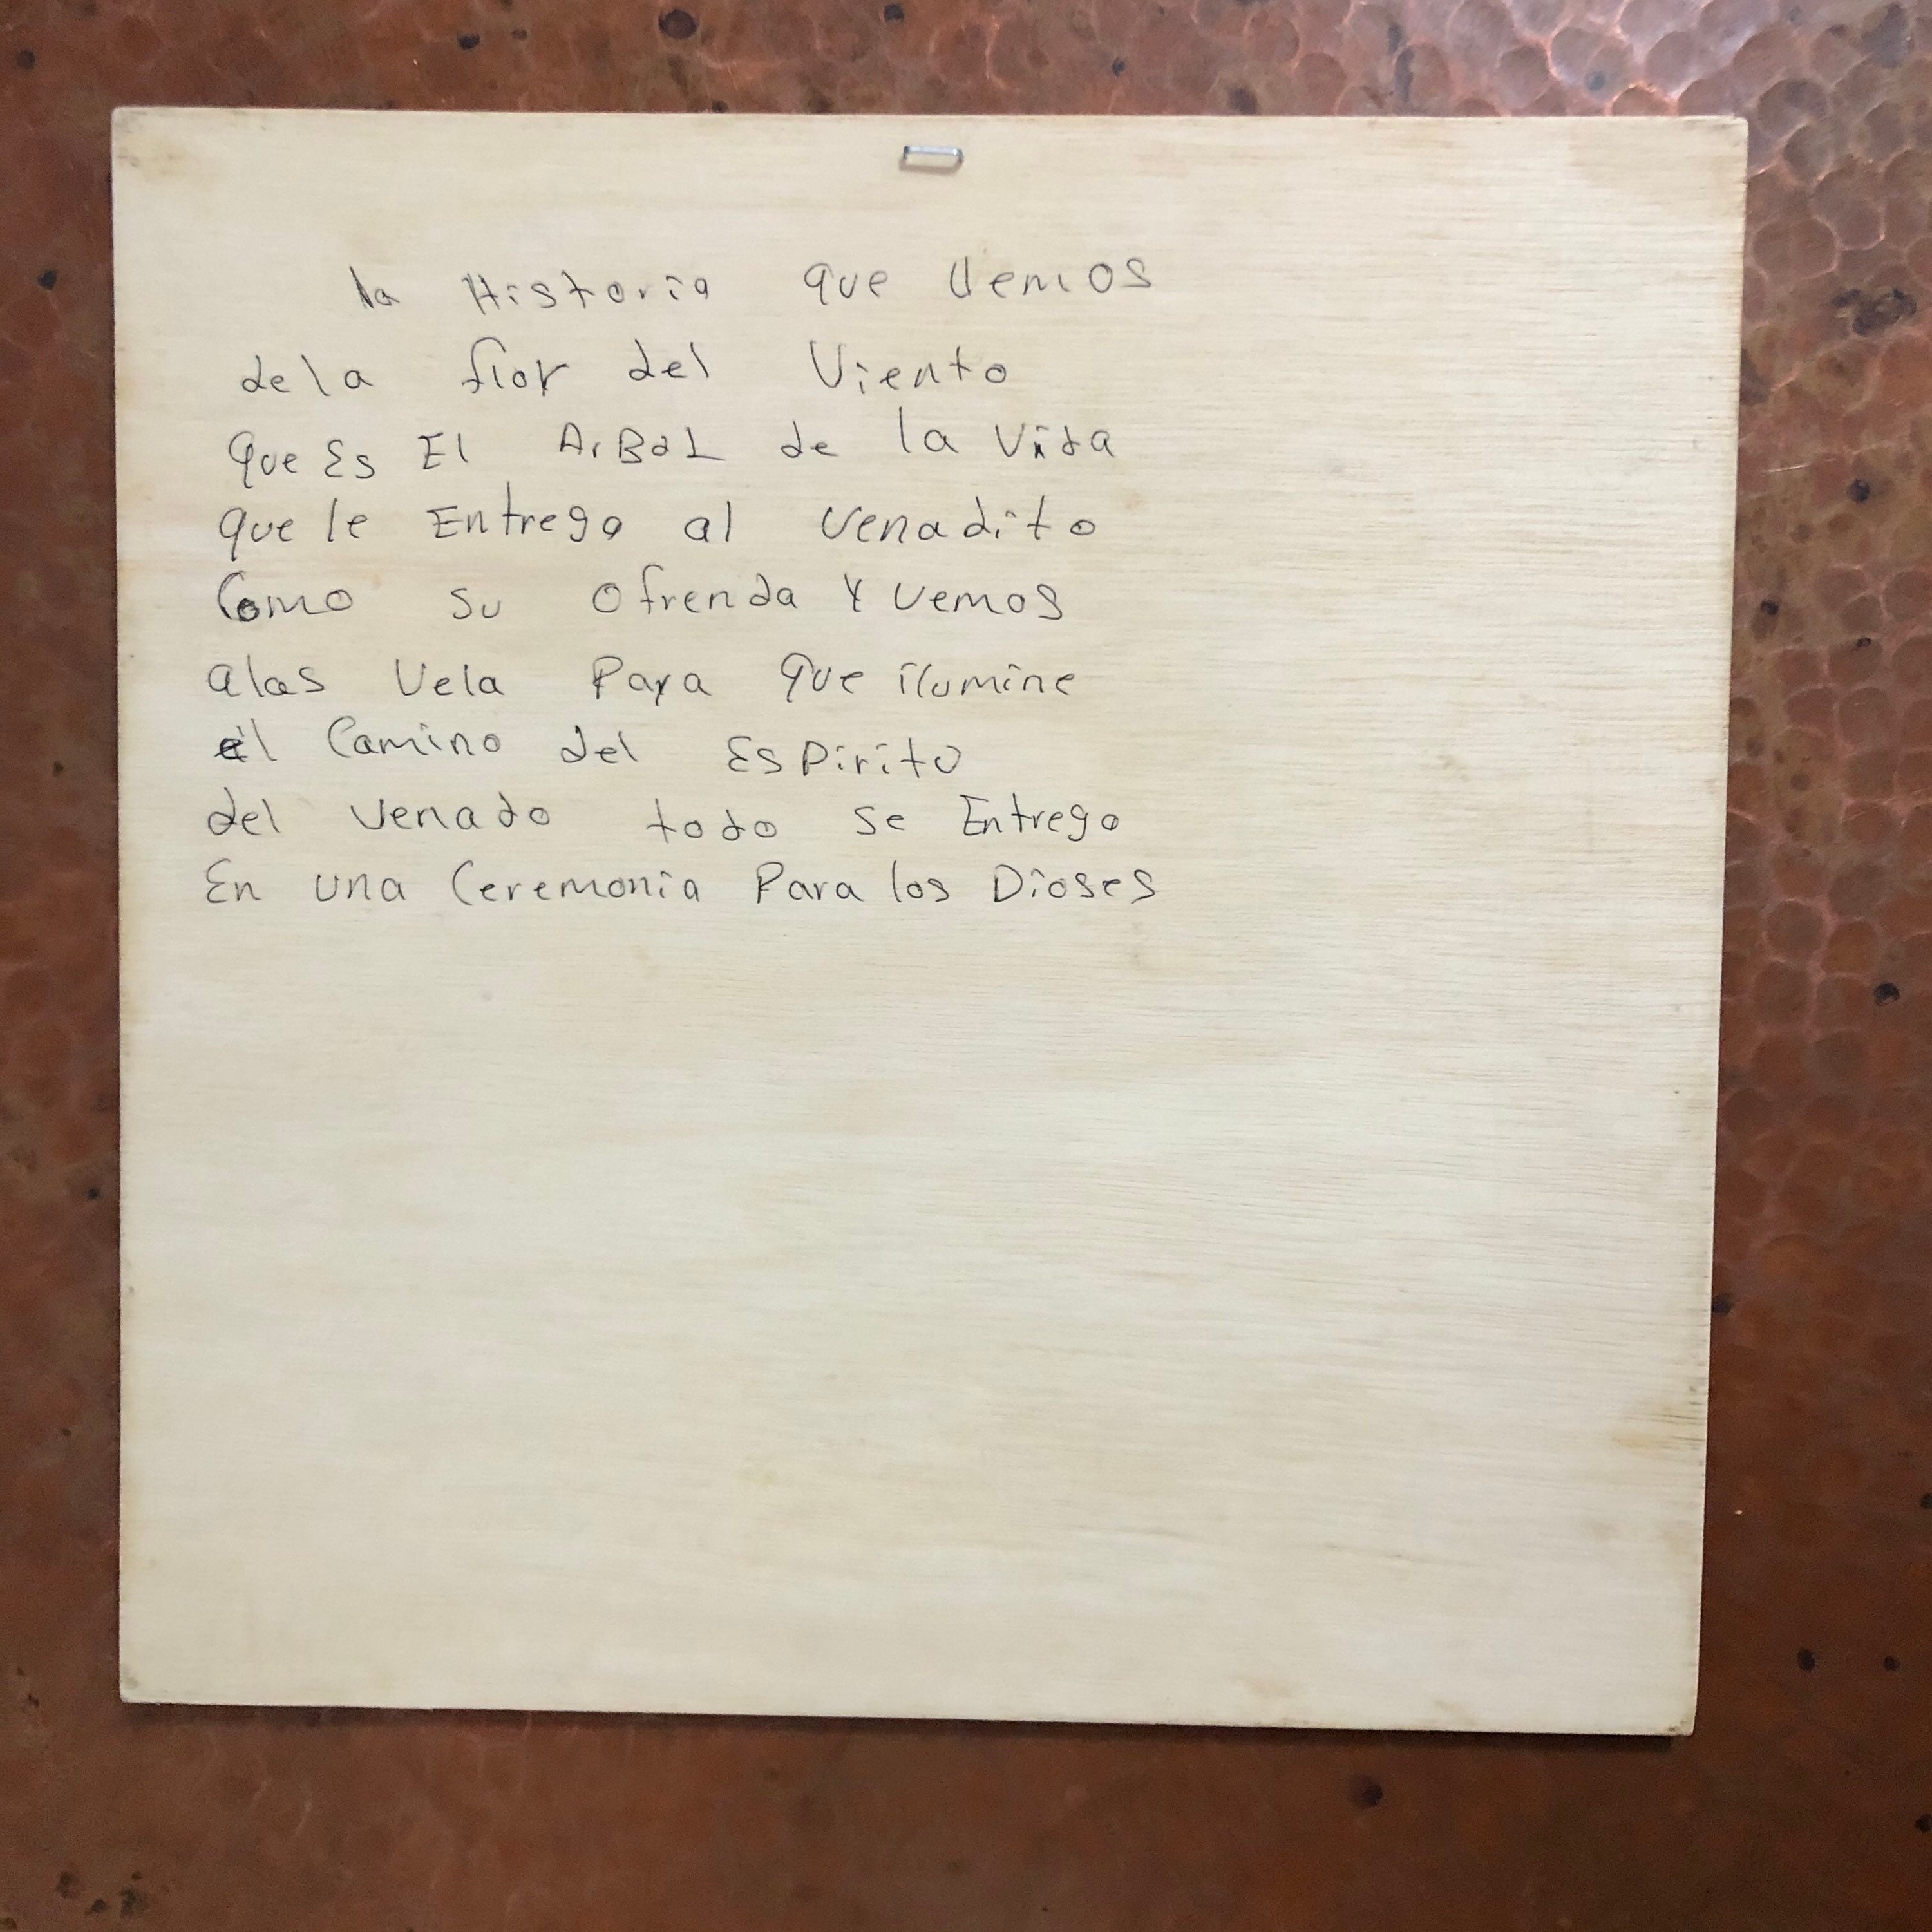 la Historia que Vemos
dela flor del Viento
que Es El ArBoL de la Vida
que le Entrego al venadito
Como su Ofrenda Y vemos
alas Vela Para que ilumine
el Camino del EsPiritu
del venado todo se Entrego
En una Ceremonia Para los Dioses